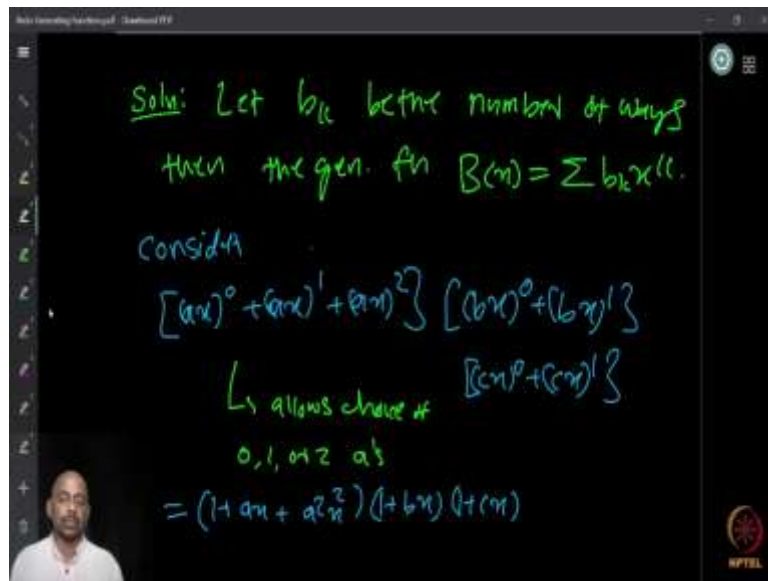 Soln: Let bₖ be the number of ways
then the gen. fn B(x) = Σ bₖxᵏ.
Consider
[(ax)⁰ + (ax)¹ + (ax)²} [(bx)⁰ + (bx)¹}
[(cx)⁰ + (cx)¹}
↳ allows choice of
0, 1, or 2 a's
= (1 + ax + a²x²) (1 + bx) (1 + cx)
NPTEL